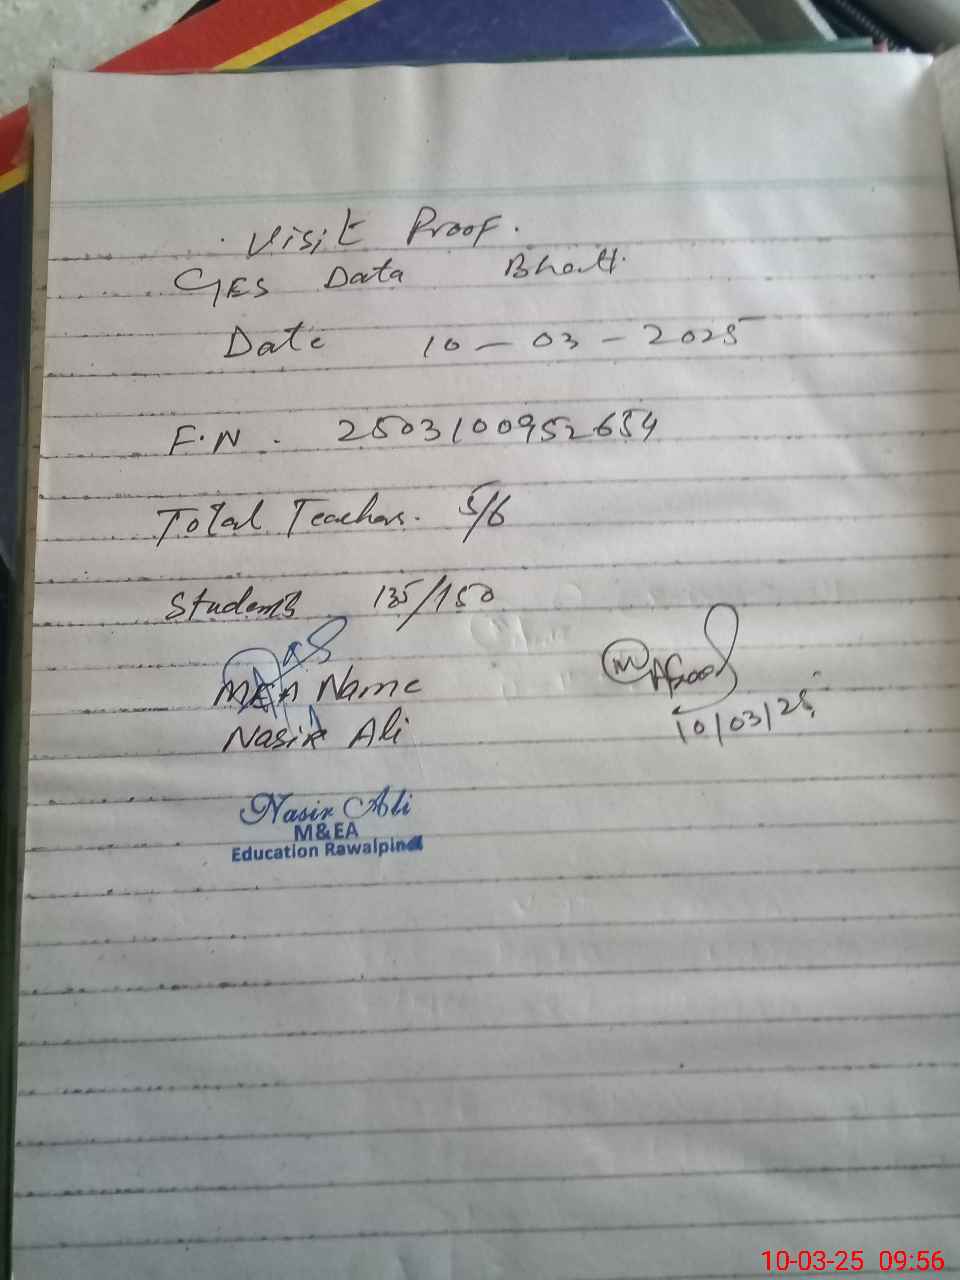 Visit Proof.
GES Data Bhatt.
Date 10-03-2025
F.N. 2503100952654
Total Teachers. 5/6
Students 135/150
MEA Name
Nasir Ali
10/03/25
Nasir Ali
M&EA
Education Rawalpindi
10-03-25 09:56